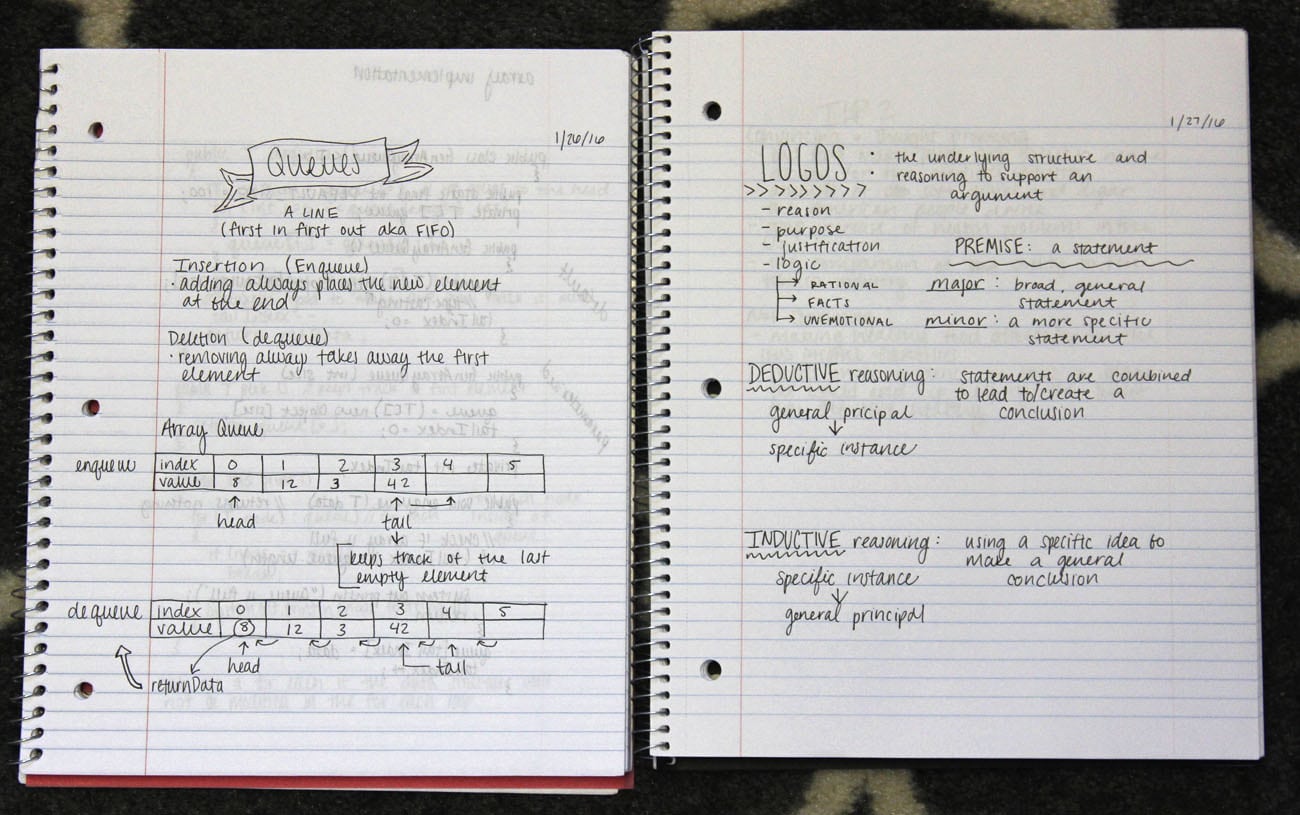 1/26/16
Queues
A LINE
(first in first out aka FIFO)
Insertion (Enqueue)
· adding always places the new element
at the end
Deletion (dequeue)
· removing always takes away the first
element
Array Queue
enqueue
index 0 1 2 3 4 5
value 8 12 3 42
head tail
keeps track of the last
empty element
dequeue
index 0 1 2 3 4 5
value 8 12 3 42
head tail
returnData
1/27/16
LOGOS : the underlying structure and
reasoning to support an
argument
>>>>>>>>>
- reason
- purpose
- justification
- logic
RATIONAL
FACTS
UNEMOTIONAL
PREMISE: a statement
major: broad, general
statement
minor: a more specific
statement
DEDUCTIVE reasoning: statements are combined
to lead to/create a
conclusion
general pricipal
specific instance
INDUCTIVE reasoning: using a specific idea to
make a general
conclusion
specific instance
general principal